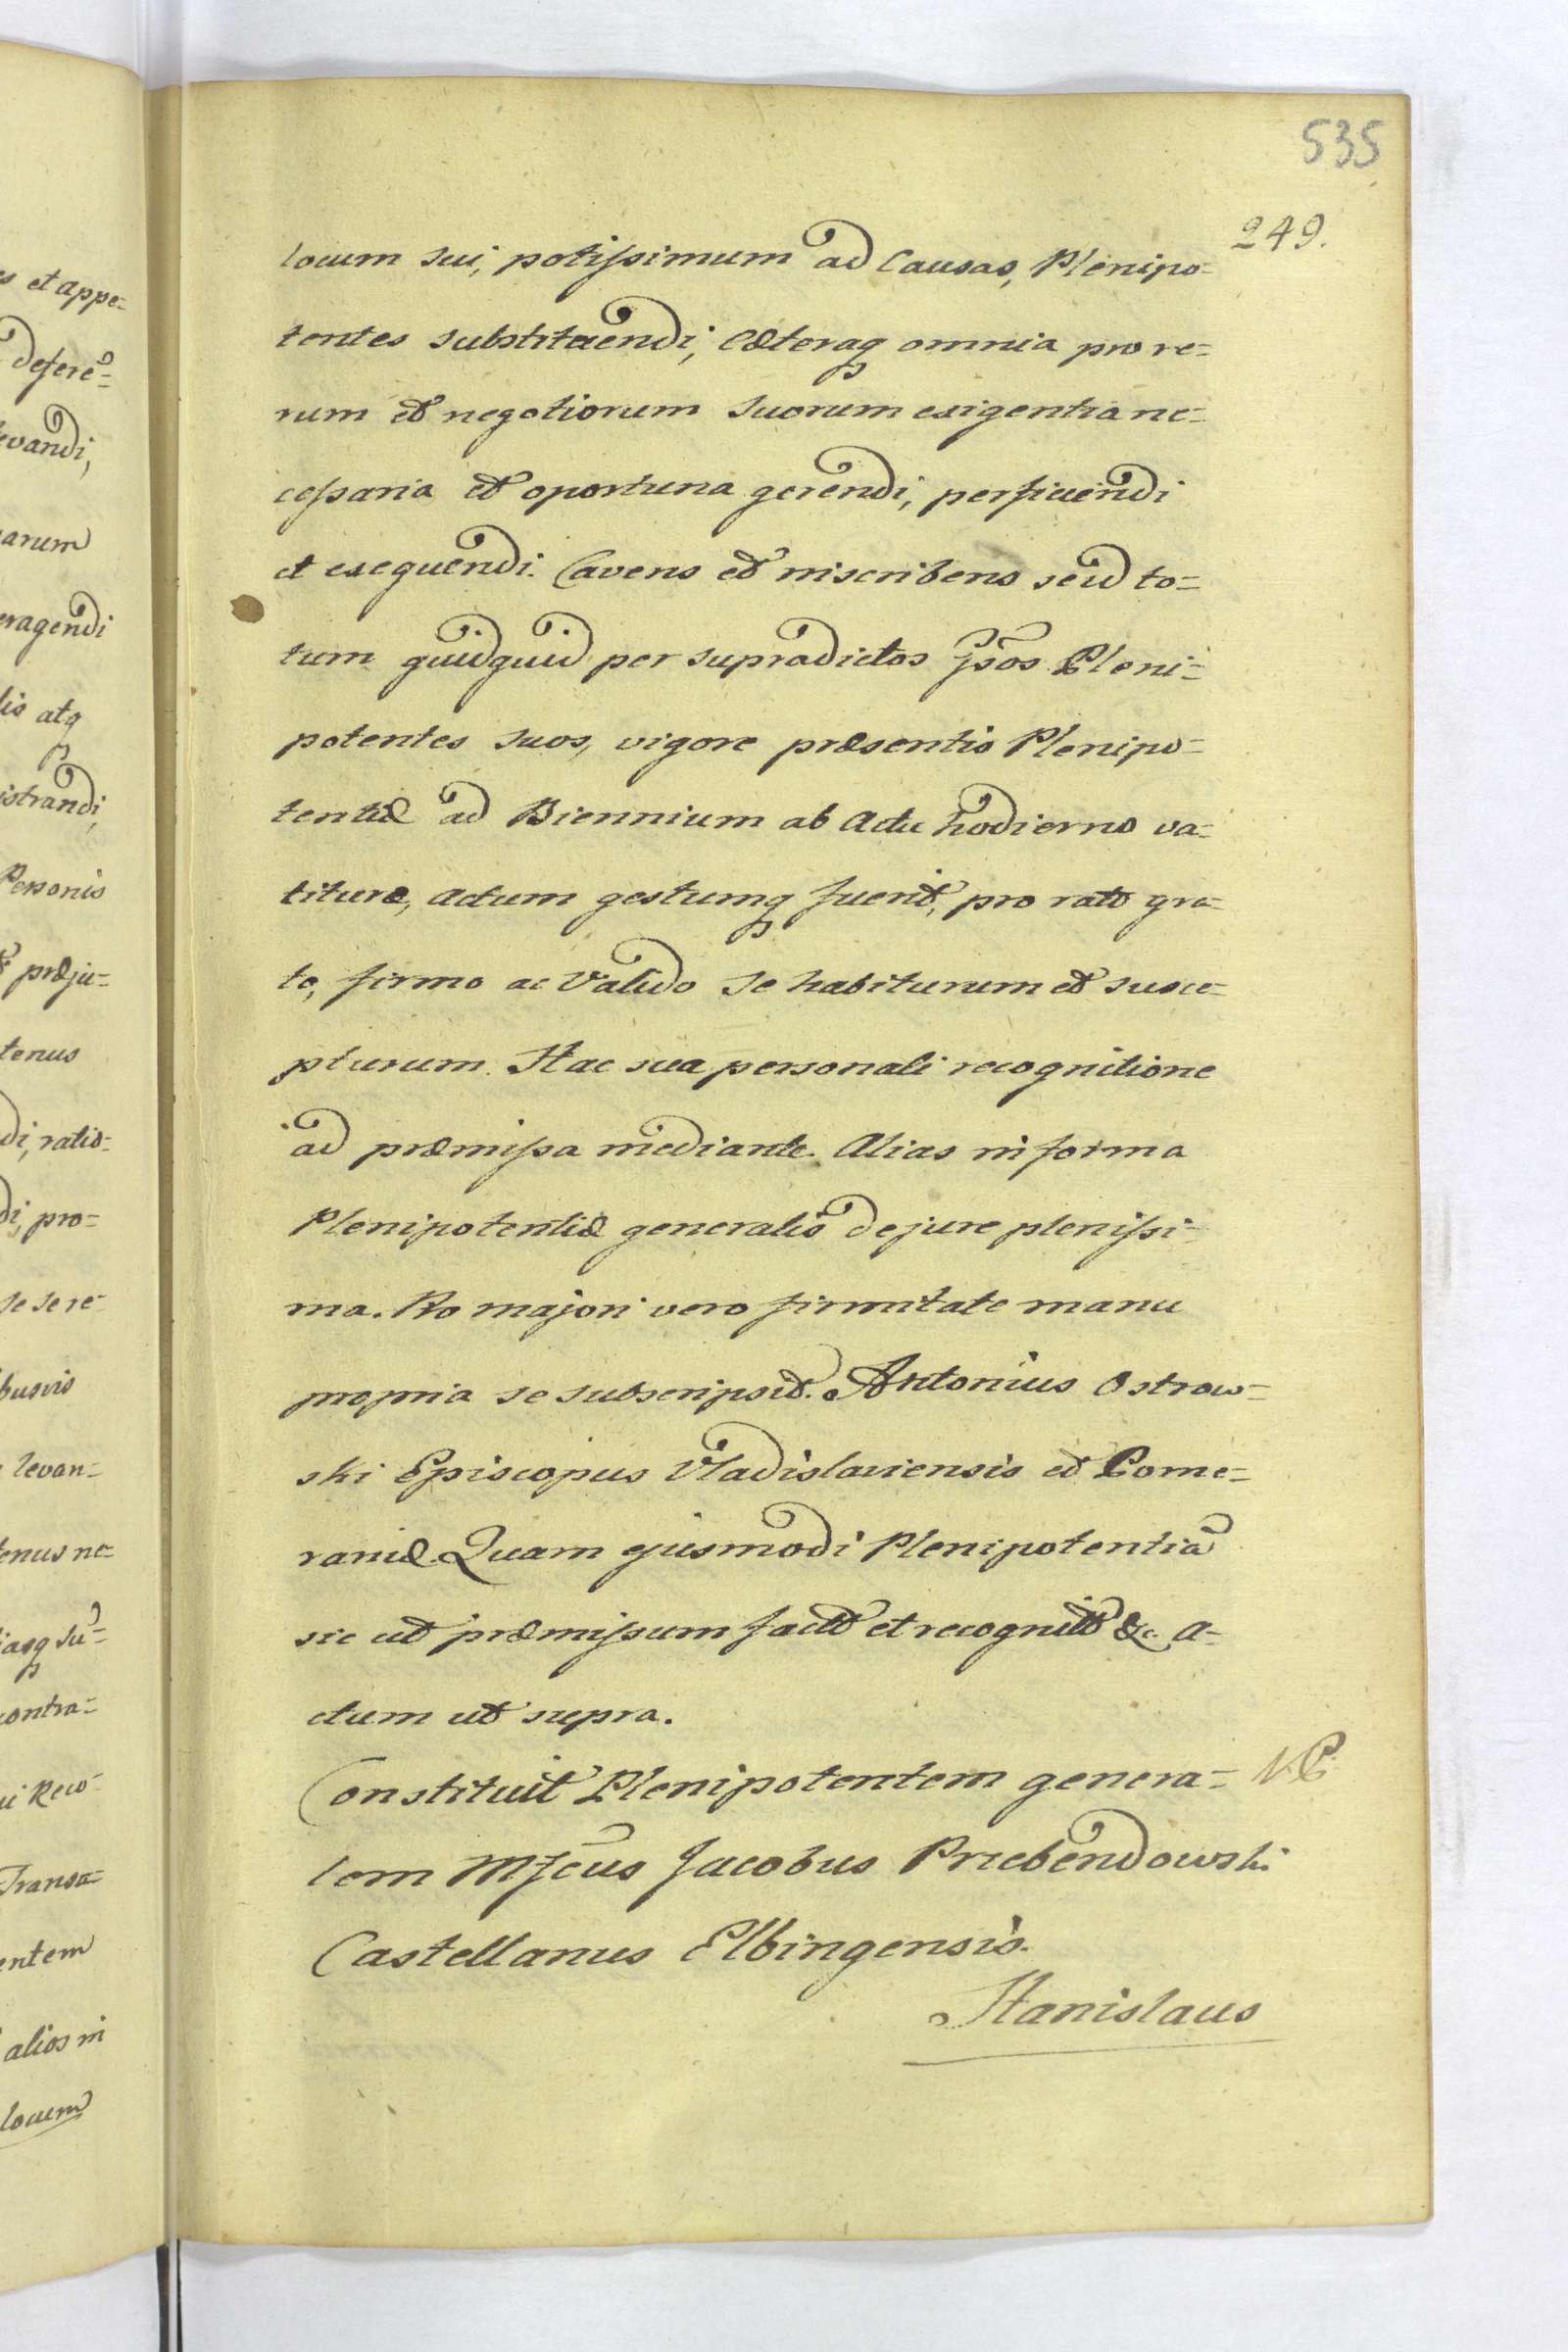 535
249.
locum sui, potissimum ad Causas, Plenipo=
tentes substituendi, Cæteraq omnia pro re=
rum et negotiorum suorum exigentia ne=
cessaria et oportuna gerendi, perficiendi
et exequendi. Cavens et inscribens seu to=
tum quidquid per supradictos Gsos Pleni=
potentes suos, vigore præsentis Plenipo=
tentiæ ad Biennium ab Actu hodierno va=
lituræ, actum gestumq fuerit, pro rato gra=
to, firmo ac valido se habiturum et susce=
pturum. Hac sua personali recognitione
ad præmissa mediante. Alias in forma
Plenipotentiæ generalis de jure plenissi=
ma. Pro majori vero firmitate manu
propria se subscripsit. Antonius Ostrow=
ski Episcopus Vladislaviensis et Pome=
raniæ. Quam ejusmodi Plenipotentiã
sic ut præmissum factt et recognitt &c. A=
ctum ut supra.
Constituit Plenipotentem genera=
lem Mfcus Jacobus Przebendowski
Castellanus Elbingensis.
Stanislaus
s et appe=
deferẽ=
evandi,
arum
eragendi
lis atq
istrandi,
Personis
præju=
tenus
di, ratio=
di, pro=
se se re=
busvis
levan=
tenus ne=
iasq su=
contra=
ui Reco=
Transa=
entem
alios in
locum